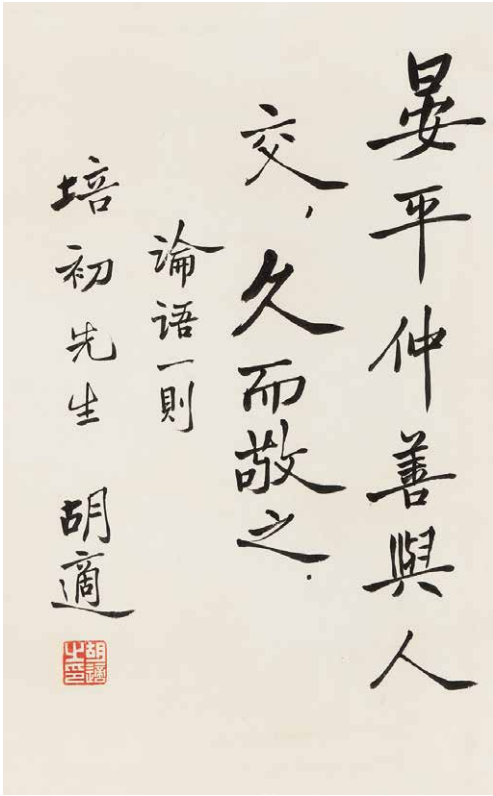 晏平仲善與人
交，久而敬之．
論語一則
培初先生 胡適
胡適之印